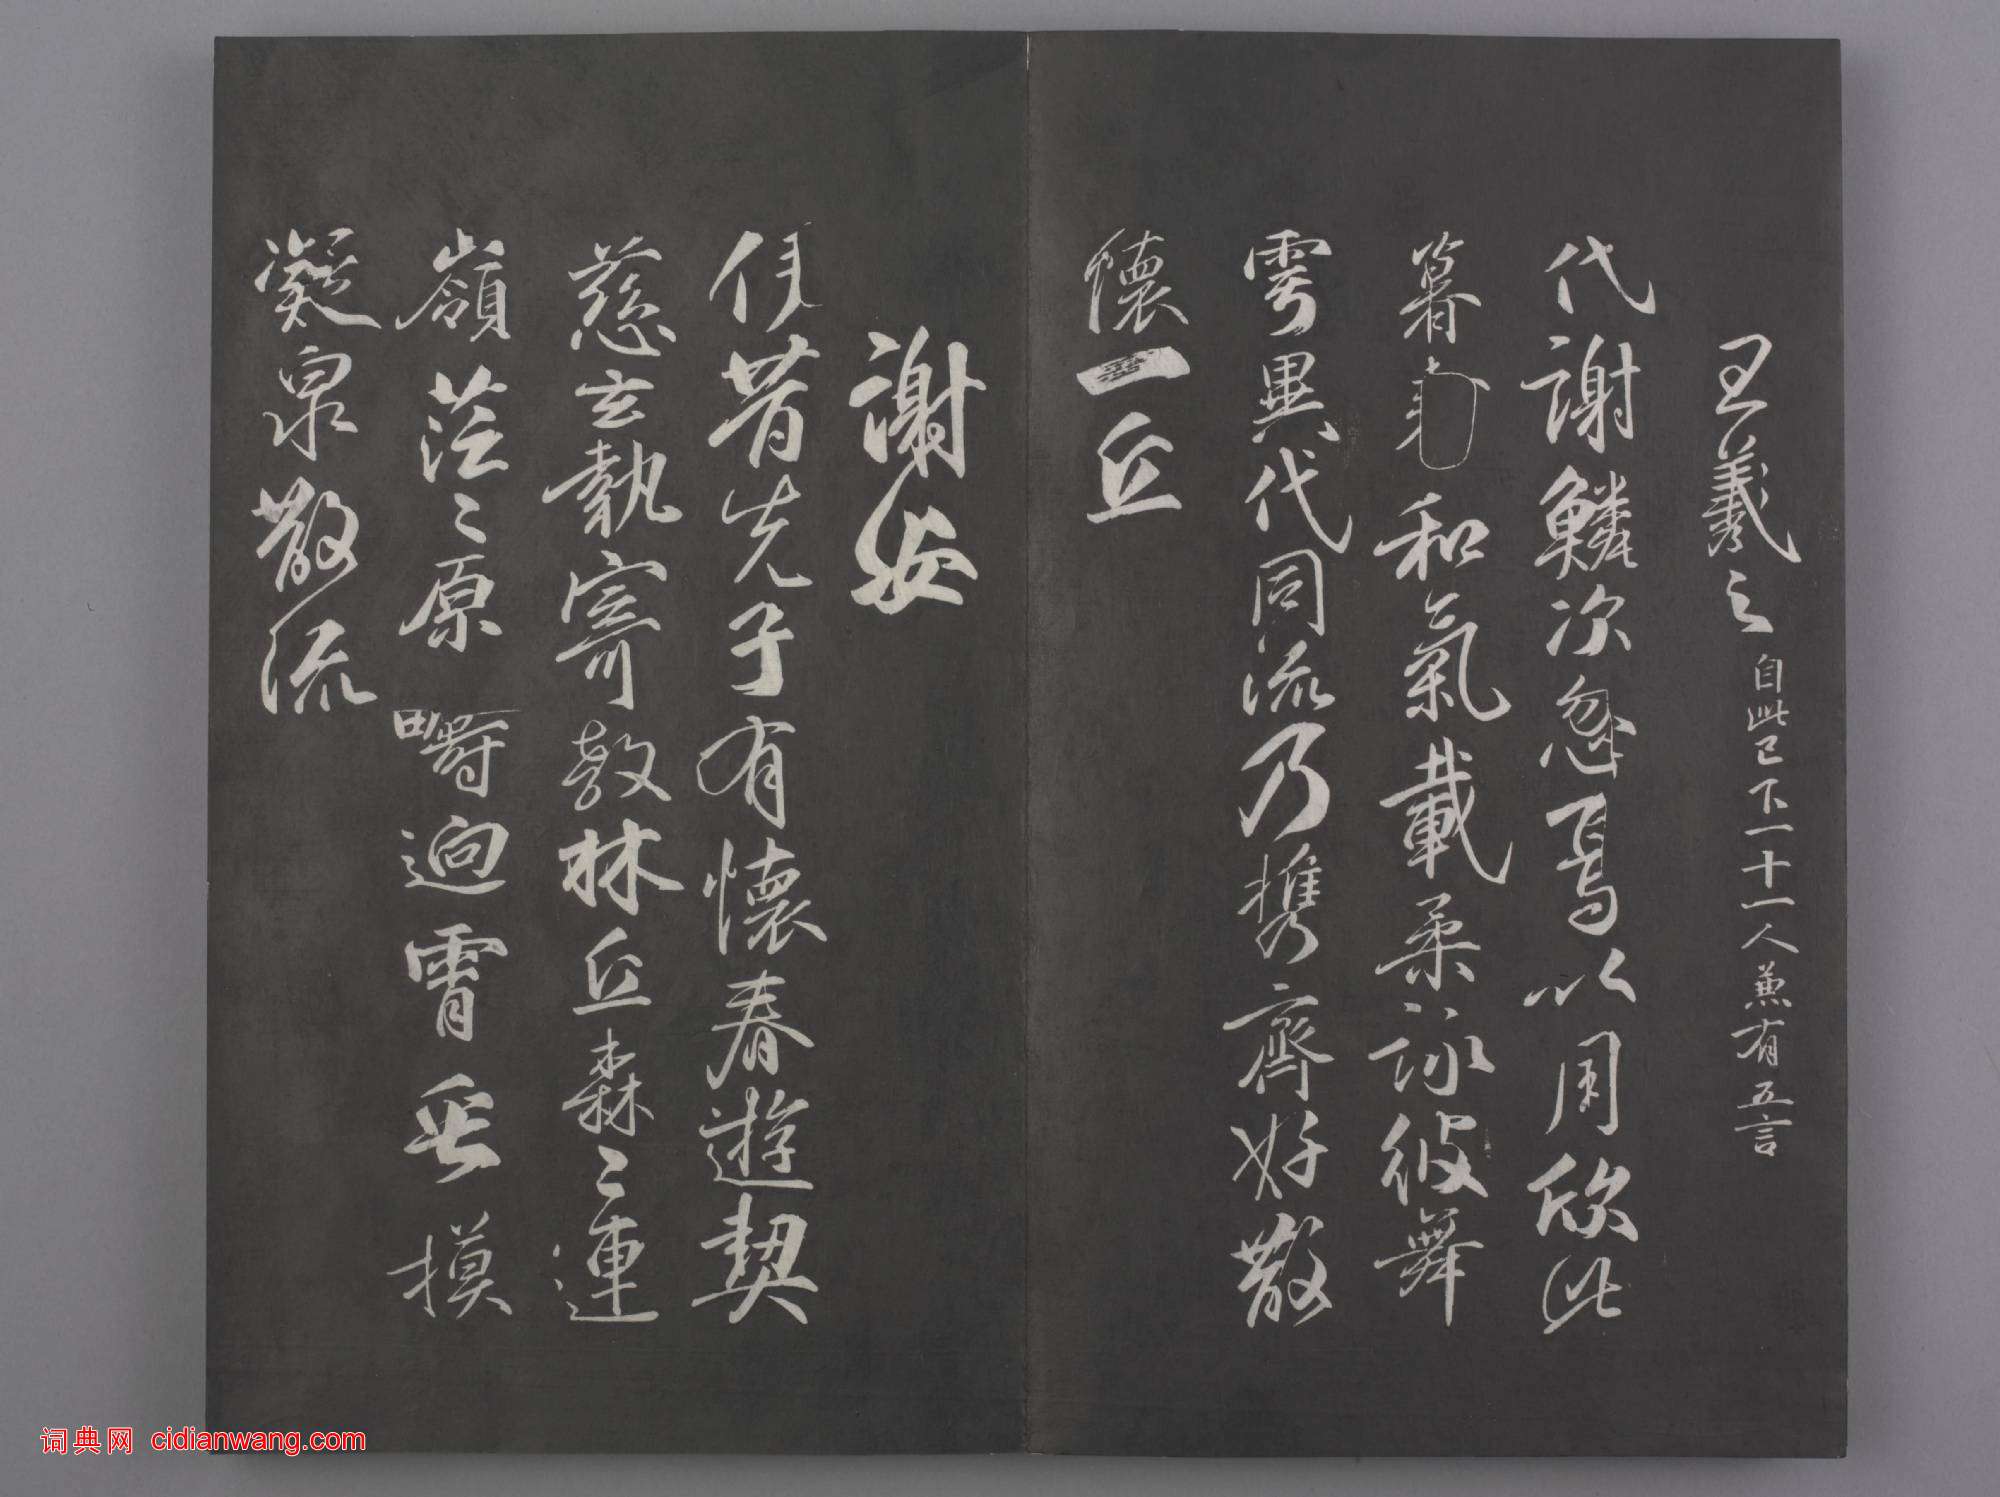 王羲之 自此已下一十一人兼有五言
代謝鱗次忽焉以周欣此
暮春和氣載柔詠彼舞
雩異代同流乃攜齊好散
懷一丘
謝安
伊昔先子有懷春遊契
慈玄執寄敖林丘森〻連
嶺茫〻原疇逈霄垂摸
凝泉散流
词典网 cidianwang.com